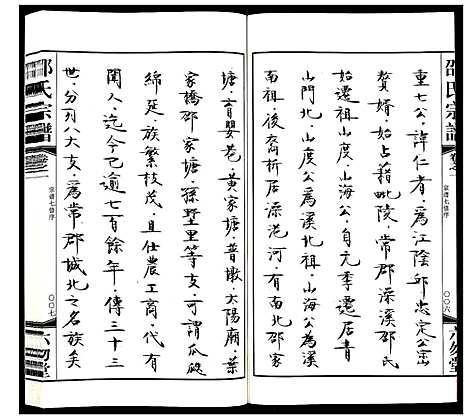 邵氏宗譜
卷之一
宗譜七修序
〇〇六
六勿堂
重七公，諱仁者，為江陰邱忠定公崈
贅婿，始占藉毗陵，常郡澡溪邵氏
始遷祖山度公、山海公，自元季遷居青
山門北，山度公為溪北祖，山海公為溪
南祖，後裔析居澡港河，有南北邵家
塘，育嬰巷，黃家塘，普墩，太陽廟，葉
家橋邵家塘，孫墅里等支，可謂瓜瓞
綿延，族繁枝茂，且仕農工商，代有
聞人，迄今已逾七百餘年，傳三十三
世，分列八大支，為常郡城北之名族矣
邵氏宗譜
卷之一
宗譜七修序
〇〇七